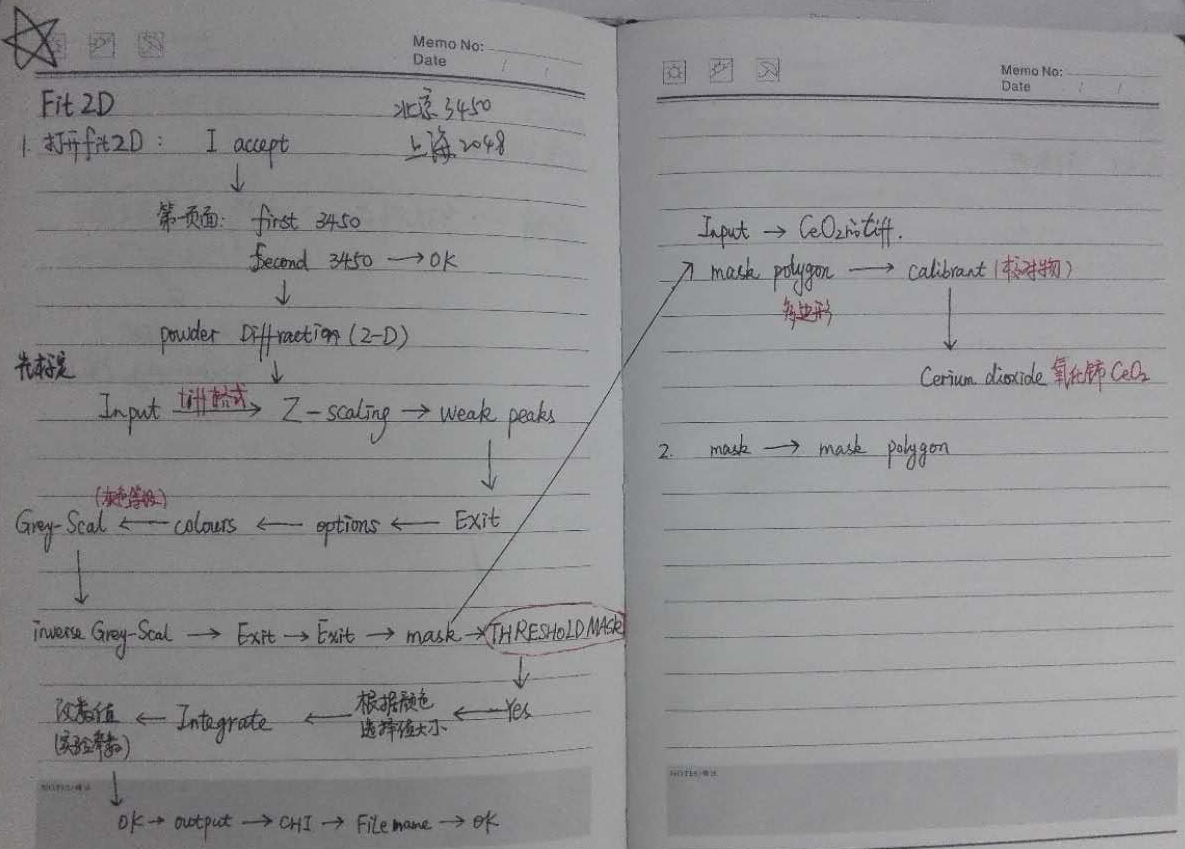 Memo No:
Date / /
Fit 2D 北京 3450
1. 打开fit2D: I accept 上海 2048
↓
第一页面: first 3450
Second 3450 → OK
↓
powder Diffraction (2-D)
先标定 ↓
Input tiff格式 → Z-scaling → weak peaks
↓
(灰色等级)
Grey-Scal ← colours ← options ← Exit
↓
inverse Grey-Scal → Exit → Exit → mask → THRESHOLD MASK
↓
改数值 ← Integrate ← 根据颜色 ← Yes
(实验参数) 选择值大小
NOTES/備注
↓
OK → output → CHI → File mane → OK
Memo No:
Date / /
Input → CeO2的tiff.
mask polygon → calibrant (校对物)
多边形 ↓
Cerium dioxide 氧化铈 CeO2
2. mask → mask polygon
NOTES/備注